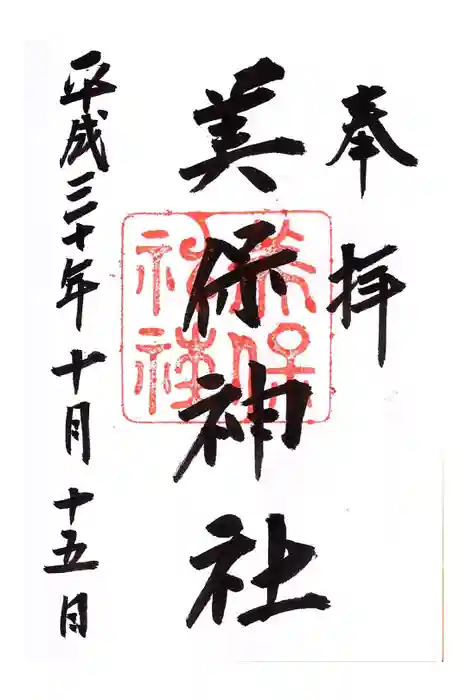 奉拝
美保神社
美保
神社
平成三十年十月十五日